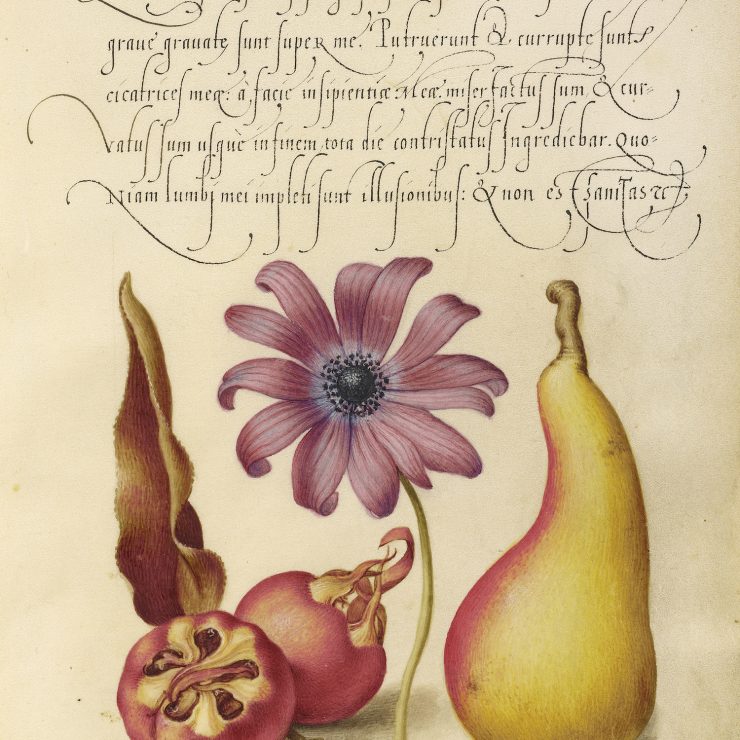 graue grauate sunt super me. Putruerunt & currupte sunt
cicatrices meæ: à facie insipientiæ. Meæ. miser factus sum, & cur-
vatus sum usque in finem, tota die contristatus Ingrediebar. Quo-
Niam lumbi mei impleti sunt illusionibus: & non est sanitas &c